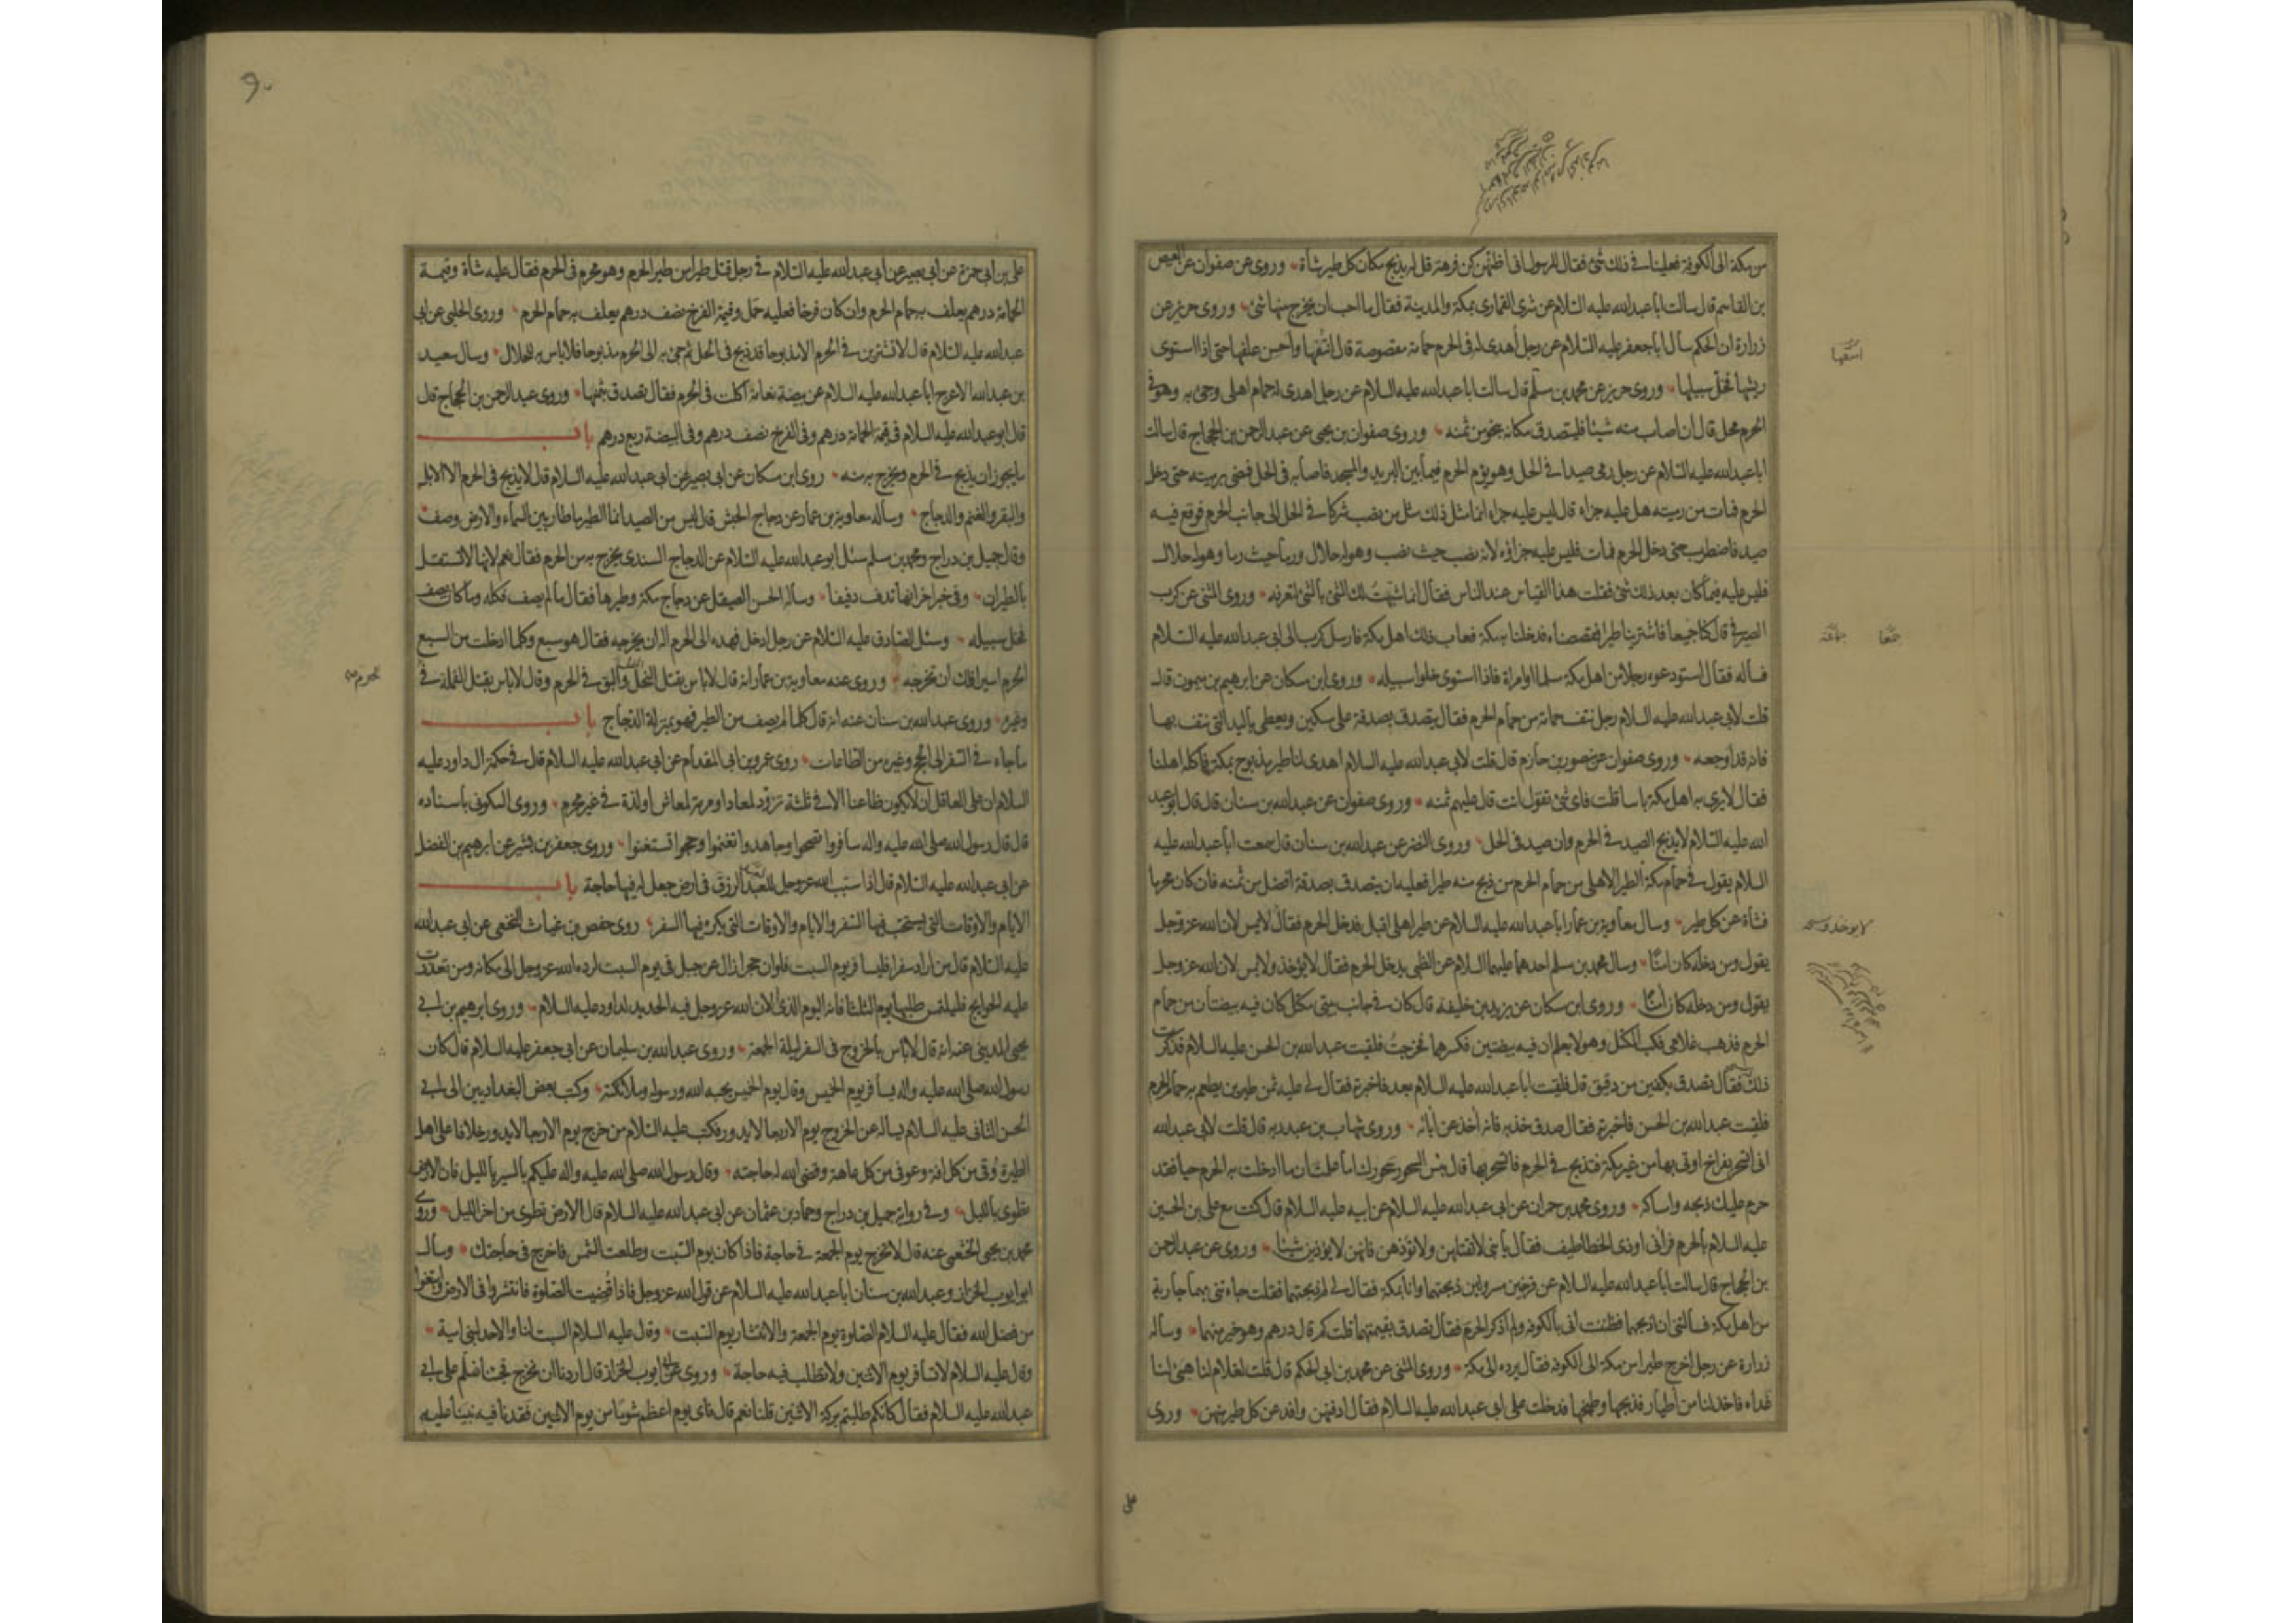 من مكة الى الكوفة فعلينا فى ذلك شئ فقال للرسول انى اظنهن كن فرهة قل له يذبح مكان كل طير شاة وروى عن صفوان عن العيص
بن القاسم قال سالت ابا عبد الله عليه السلام عن شرى القمارى بمكة والمدينة فقال ما احب ان يخرج منها شئ وروى حريز عن
زرارة ان الحكم سال ابا جعفر عليه السلام عن رجل أهدى له فى الحرم حمامة مقصوصة قال انتفها واحسن علفها حتى اذا استوى
ريشها فخل سبيلها وروى حريز عن محمد بن مسلم قال سالت ابا عبد الله عليه السلام عن رجل اهدى له حمام اهلى وجئ به وهو فى
الحرم محل قال ان اصاب منه شيئا فليتصدق مكانه بنحو من ثمنه وروى صفوان بن يحيى عن عبد الرحمن بن الحجاج قال سالت
ابا عبد الله عليه السلام عن رجل رمى صيدا فى الحل وهو يؤم الحرم فيما بين البريد والمسجد فاصابه فى الحل فمضى برميته حتى دخل
الحرم فمات من رميته هل عليه جزاء قال ليس عليه جزاء انما مثل ذلك مثل من نصب شركا فى الحل الى جانب الحرم فوقع فيه
صيد فاضطرب حتى دخل الحرم فمات فليس عليه جزاؤه لانه نصب حيث نصب وهو له حلال ورما حيث رما وهو له حلال
فليس عليه فيما كان بعد ذلك شئ فقلت هذا القياس عند الناس فقال انما شبهت لك الشئ بالشئ لتعرفه وروى المثنى عن كرب
الصيرفى قال كنا جميعا فاشترينا طيرا فقصصناه فدخلنا به مكة فعاب ذلك اهل مكة فارسل كرب الى ابى عبد الله عليه السلام
فساله فقال استودعوه رجلا من اهل مكة مسلما او امراة فاذا استوى خلوا سبيله وروى ابن مسكان عن ابرهيم بن ميمون قال
قلت لابى عبد الله عليه السلام رجل نتف حمامة من حمام الحرم فقال يتصدق بصدقة على مسكين ويعطى باليد التى نتف بها
فانه قد اوجعه وروى صفوان عن منصور بن حازم قال قلت لابى عبد الله عليه السلام اهدى لنا طير مذبوح بمكة فاكله اهلنا
فقال لا يرى به اهل مكة باسا قلت فاى شئ تقول انت قال عليهم ثمنه وروى صفوان عن عبد الله بن سنان قال قال ابو عبد
الله عليه السلام لا يذبح الصيد فى الحرم وان صيد فى الحل وروى النضر عن عبد الله بن سنان قال سمعت ابا عبد الله عليه
السلام يقول فى حمام مكة الطير الاهلى من حمام الحرم من ذبح منه طيرا فعليه ان يتصدق بصدقة افضل من ثمنه فان كان محرما
فشاة عن كل طير وسال معاوية بن عمار ابا عبد الله عليه السلام عن طير اهلى اقبل فدخل الحرم فقال لا يمس لان الله عز وجل
يقول ومن دخله كان امنا وسال محمد بن مسلم احدهما عليهما السلام عن الظبى يدخل الحرم فقال لا يؤخذ ولا يمس لان الله عز وجل
يقول ومن دخله كان امنا وروى ابن مسكان عن يزيد بن خليفة قال كان فى جانب بيتى مكتل كان فيه بيضتان من حمام
الحرم فذهب غلامى فكب المكتل وهو لا يعلم ان فيه بيضتين فكسرهما فخرجت فلقيت عبد الله بن الحسن عليه السلام فذكرت
ذلك فقال تصدق بكفين من دقيق قال فلقيت ابا عبد الله عليه السلام بعد فاخبرته فقال لى عليه ثمن طيرين يطعم به حمام الحرم
فلقيت عبد الله بن الحسن فاخبرته فقال صدق خذ به فانه اخذ عن ابائه وروى شهاب بن عبد ربه قال قلت لابى عبد الله
انى اتسحر بفراخ اوتى بها من غير مكة فتذبح فى الحرم فاتسحر بها قال بئس السحور سحورك اما علمت ان ما ادخلت به الحرم حيا فقد
حرم عليك ذبحه وامساكه وروى محمد بن حمران عن ابى عبد الله عليه السلام عن ابيه عليه السلام قال كنت مع على بن الحسين
عليه السلام بالحرم فرانى اوذى الخطاطيف فقال يا بنى لا تقتلهن ولا تؤذهن فانهن لا يؤذين شيئا وروى عن عبد الرحمن
بن الحجاج قال سالت ابا عبد الله عليه السلام عن فرخين مسرولين ذبحتهما وانا بمكة فقال لى لم ذبحتهما فقلت جاءتنى بهما جارية
من اهل مكة فسالتنى ان اذبحهما فظننت انى بالكوفة ولم اذكر الحرم فقال تصدق بقيمتهما قلت كم قال درهم وهو خير منهما وساله
زرارة عن رجل اخرج طيرا من مكة الى الكوفة فقال يرده الى مكة وروى المثنى عن محمد بن ابى الحكم قال قلت لغلام لنا هيئ لنا
غداء فاخذ لنا من اطيار فذبحها وطبخها فدخلت على ابى عبد الله عليه السلام فقال ادفنهن وافد عن كل طير منهن وروى
على
لا يوخذ ولا يمسه
٩٠
على بن ابى حمزة عن ابى بصير عن ابى عبد الله عليه السلام فى رجل قتل طيرا من طير الحرم وهو محرم فى الحرم فقال عليه شاة وقيمة
الحمامة درهم يعلف به حمام الحرم وان كان فرخا فعليه حمل وقيمة الفرخ نصف درهم يعلف به حمام الحرم وروى الحلبى عن ابى
عبد الله عليه السلام قال لا تشترين فى الحرم الا مذبوحا قد ذبح فى الحل ثم جئ به الى الحرم مذبوحا فلا باس به للحلال وسال سعيد
بن عبد الله الاعرج ابا عبد الله عليه السلام عن بيضة نعامة اكلت فى الحرم فقال تصدق بثمنها وروى عبد الرحمن بن الحجاج قال
قال ابو عبد الله عليه السلام فى قيمة الحمامة درهم وفى الفرخ نصف درهم وفى البيضة ربع درهم باب
ما يجوز ان يذبح فى الحرم ويخرج به منه روى ابن مسكان عن ابى بصير عن ابى عبد الله عليه السلام قال لا يذبح فى الحرم الا الابل
والبقر والغنم والدجاج وساله معاوية بن عمار عن دجاج الحبش قال ليس من الصيد انما الطير ما طار بين السماء والارض وصف
وقال جميل بن دراج ومحمد بن مسلم سئل ابو عبد الله عليه السلام عن الدجاج السندى يخرج به من الحرم فقال نعم لانها لا تستقل
بالطيران وفى خبر اخر انها تدف دفيفا وساله الحسن الصيقل عن دجاج مكة وطيرها فقال ما لم يصف فكله وما كان يصف
فخل سبيله وسئل الصادق عليه السلام عن رجل ادخل فهده الى الحرم اله ان يخرجه فقال هو سبع وكلما ادخلت من السبع
الحرم اسيرا فلك ان تخرجه وروى عنه معاوية بن عمار انه قال لا باس بقتل النمل والبق فى الحرم وقال لا باس بقتل القملة فى
وغيره وروى عبد الله بن سنان عنه انه قال كلما لم يصف من الطير فهو بمنزلة الدجاج باب
ما جاء فى السفر الى الحج وغيره من الطاعات روى عمرو بن ابى المقدام عن ابى عبد الله عليه السلام قال فى حكمة ال داود عليه
السلام ان على العاقل ان لا يكون ظاعنا الا فى ثلثة تزود لمعاد او مرمة لمعاش او لذة فى غير محرم وروى السكونى باسناده
قال قال رسول الله صلى الله عليه واله سافروا تصحوا وجاهدوا تغنموا وحجوا تستغنوا وروى جعفر بن بشير عن ابرهيم بن الفضل
عن ابى عبد الله عليه السلام قال اذا سبب الله عز وجل للعبد الرزق فى ارض جعل له فيها حاجة باب
الايام والاوقات التى يستحب فيها السفر والايام والاوقات التى يكره فيها السفر روى حفص بن غياث النخعى عن ابى عبد الله
عليه السلام قال من اراد سفرا فليسافر يوم السبت فلو ان حجرا زال عن جبل فى يوم السبت لرده الله عز وجل الى مكانه ومن تعذرت
عليه الحوايج فليلتمس طلبها يوم الثلثا فانه اليوم الذى الان الله عز وجل فيه الحديد لداود عليه السلام وروى ابرهيم بن ابى
يحيى المدينى عنه انه قال لا باس بالخروج فى السفر ليلة الجمعة وروى عبد الله بن سليمان عن ابى جعفر عليه السلام قال كان
رسول الله صلى الله عليه واله يسافر يوم الخميس وقال يوم الخميس يحبه الله ورسوله وملائكته وكتب بعض البغداديين الى ابى
الحسن الثانى عليه السلام يساله عن الخروج يوم الاربعا لا يدور فكتب عليه السلام من خرج يوم الاربعا لا يدور خلافا على اهل
الطيرة وقى من كل افة وعوفى من كل عاهة وقضى الله له حاجته وقال رسول الله صلى الله عليه واله عليكم بالسير بالليل فان الارض
تطوى بالليل وفى رواية جميل بن دراج وحماد بن عثمان عن ابى عبد الله عليه السلام قال الارض تطوى من اخر الليل وروى
محمد بن يحيى الخثعمى عنه قال لا تخرج يوم الجمعة فى حاجة فاذا كان يوم السبت وطلعت الشمس فاخرج فى حاجتك وسال
ابو ايوب الخزاز وعبد الله بن سنان ابا عبد الله عليه السلام عن قول الله عز وجل فاذا قضيت الصلوة فانتشروا فى الارض وابتغوا
من فضل الله فقال عليه السلام الصلوة يوم الجمعة والانتشار يوم السبت وقال عليه السلام السبت لنا والاحد لبنى امية
وقال عليه السلام لا تسافر يوم الاثنين ولا تطلب فيه حاجة وروى عن ابى ايوب الخزاز قال اردنا ان نخرج فجئنا نسلم على ابى
عبد الله عليه السلام فقال كانكم طلبتم بركة الاثنين قلنا نعم قال فاى يوم اعظم شوما من يوم الاثنين فقدنا فيه نبينا عليه